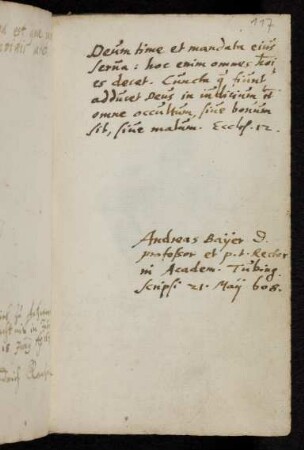 117
Deum time et mandata eius
serua: hoc enim omnes hoı̃
es decet. Cuncta q̃ fiunt
adducet Deus in iudicium et
omne occultum, siue bonum
sit, siue malum. Eccles. 12.
Andreas Baÿer D.
professor et p.t. Rector
in Academ. Tubing.
scripsi 21. Maÿ 608.